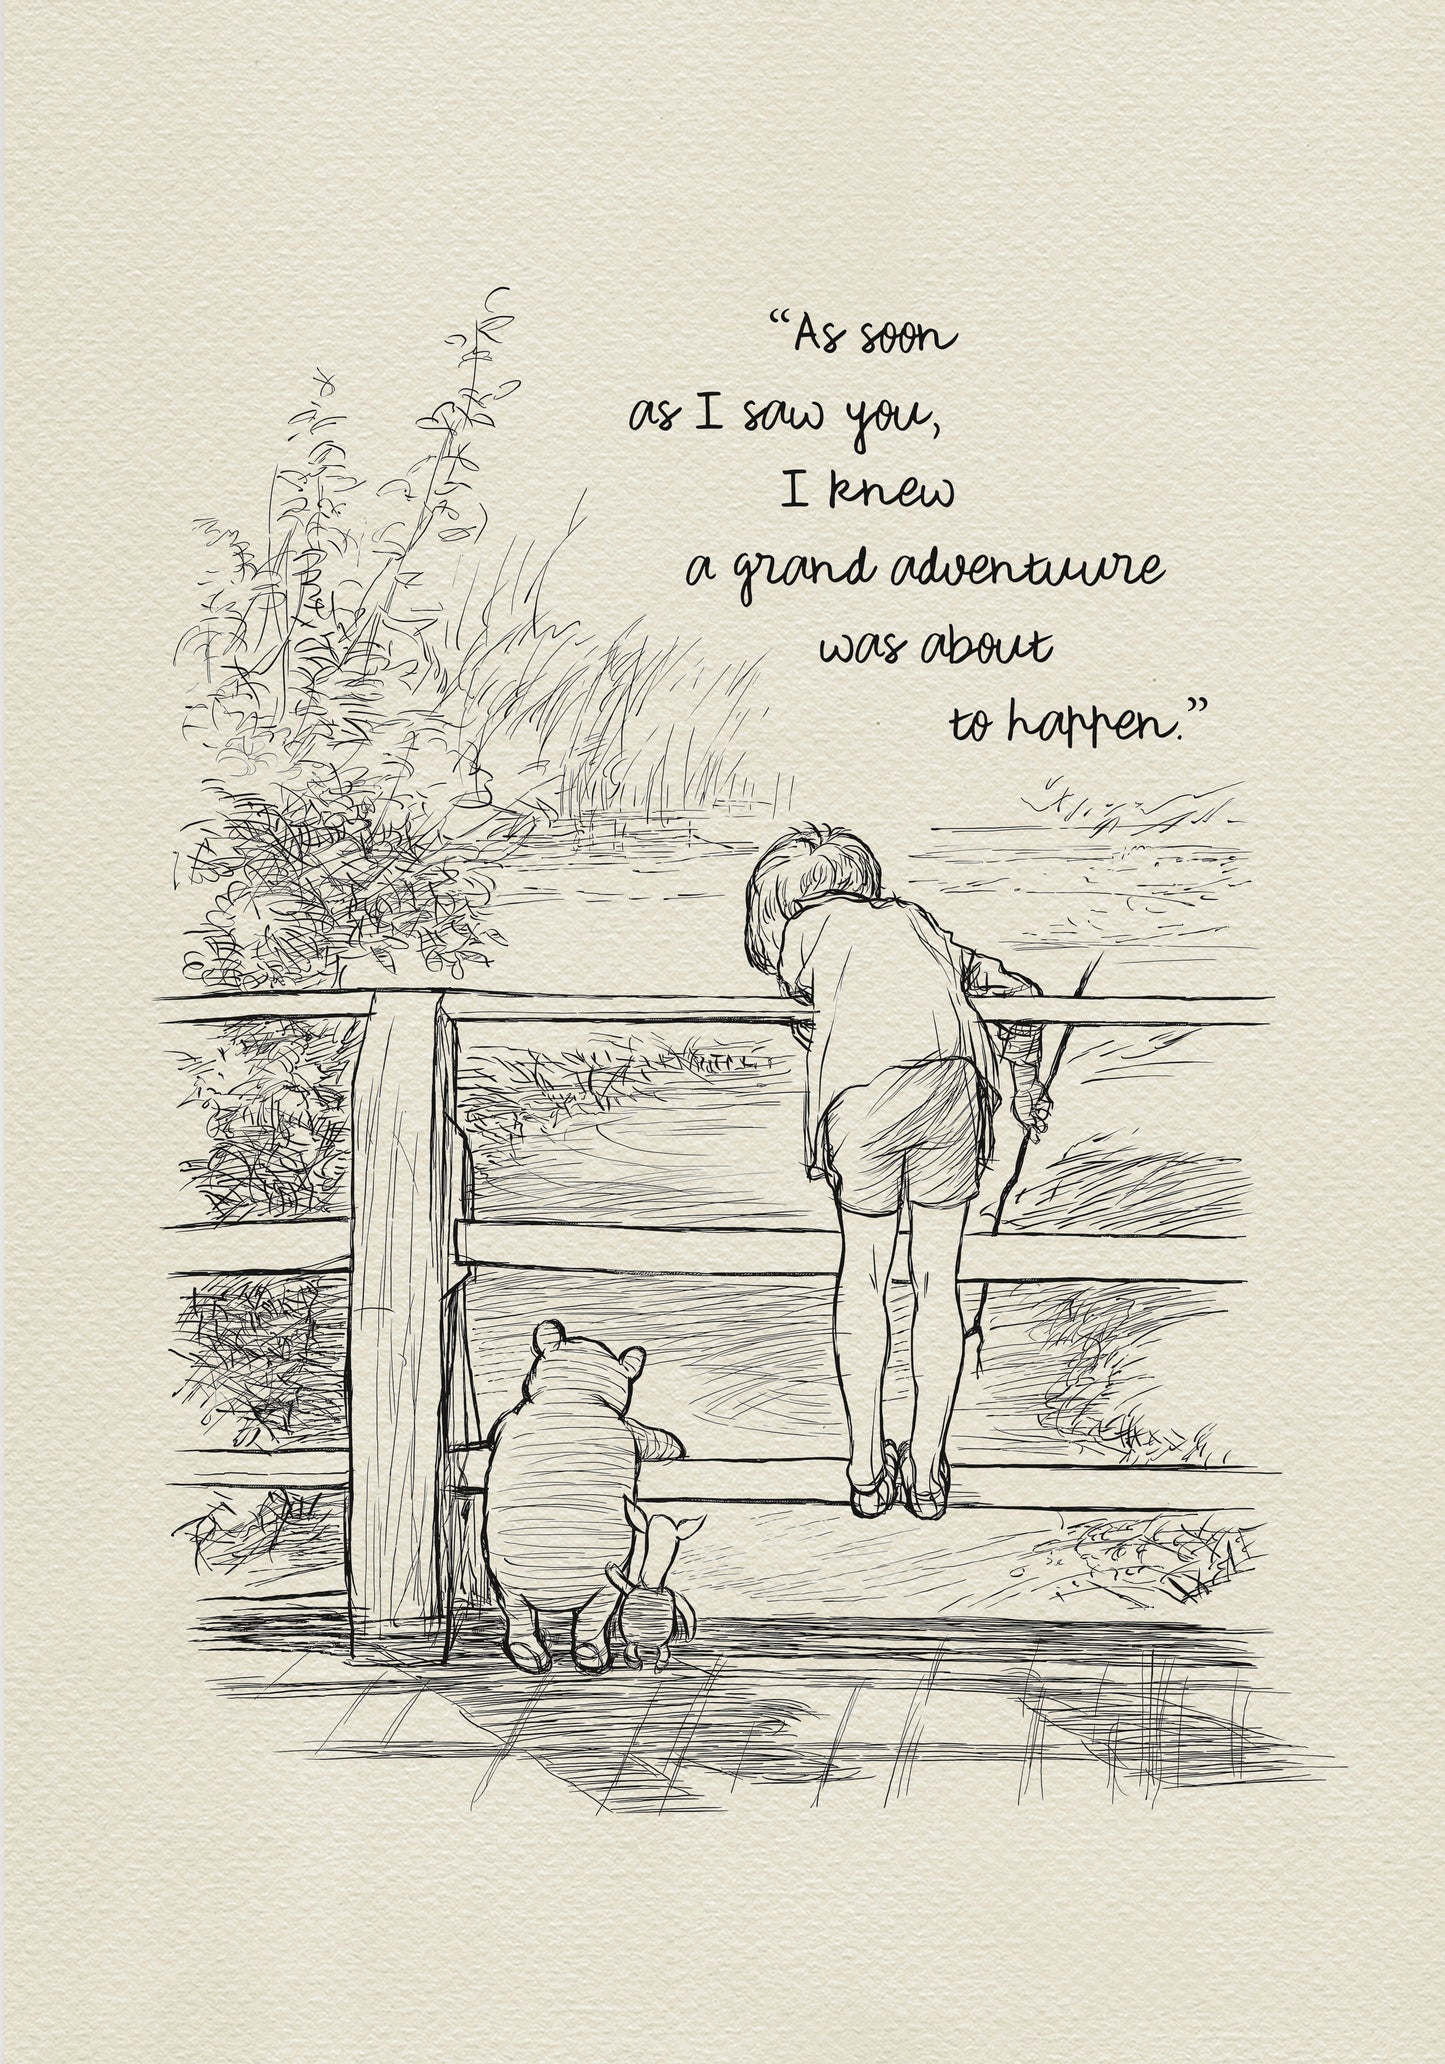 “As soon
as I saw you,
I knew
a grand adventuure
was about
to happen.”